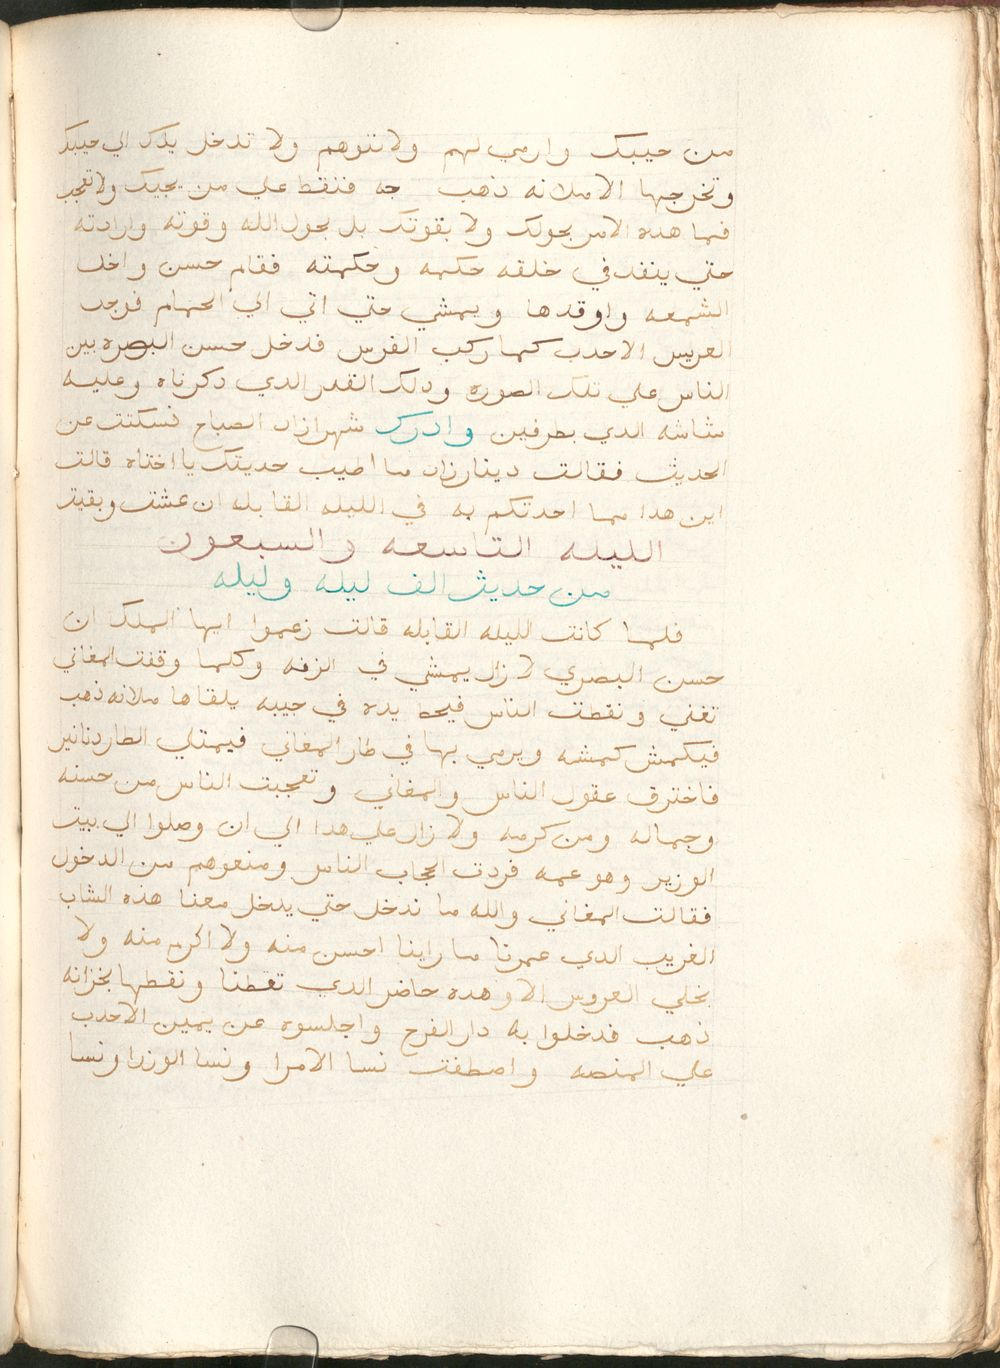 من جيبك وارمي لهم ولا تتوهم ولا تدخل يدك الي جيبك
وتخرجها الا ملانه ذهب جه فنقط علي من يجيك ولا تعجب
فما هذه الامر بحولك ولا بقوتك بل بحول الله وقوته وارادته
حتي ينفد في خلقه حكمه وحكمته فقام حسن واخد
الشمعه واوقدها ويمشي حتي اتي الي الحمام فوجد
العريس الاحدب كما ركب الفرس فدخل حسن البصره بين
الناس علي تلك الصوره ودلك القدر الدي دكرناه وعليه
شاشه الدي بطرفين وادرك شهرازاد الصباح فسكتت عن
الحديث فقالت دينارزاد ما اطيب حديتك يا اختاه قالت
اين هدا مما احدتكم به في الليله القابله ان عشت وبقيت
الليله التاسعه والسبعون
من حديث الف ليله وليله
فلما كانت الليله القابله قالت زعموا ايها الملك ان
حسن البصري لا زال يمشي في الزفه وكلما وقفت المغاني
تغني ونقطت الناس فيحط يده في جيبه يلقاها ملانه ذهب
فيكمش كمشه ويرمي بها في طار المغاني فيمتلي الطار دنانير
فاخترق عقول الناس والمغاني وتعجبت الناس من حسنه
وجماله ومن كرمه ولا زال علي هدا الي ان وصلوا الي بيت
الوزير وهو عمه فردت الحجاب الناس ومنعوهم من الدخول
فقالت المغاني والله ما ندخل حتي يدخل معنا هذه الشاب
الغريب الدي عمرنا ما راينا احسن منه ولا اكرم منه ولا
نجلي العروس الا وهده حاضر الدي نقطنا ونقطها بخزانه
ذهب فدخلوا به دار الفرح واجلسوه عن يمين الاحدب
علي المنصه واصطفت نسا الامرا ونسا الوزرا ونسا